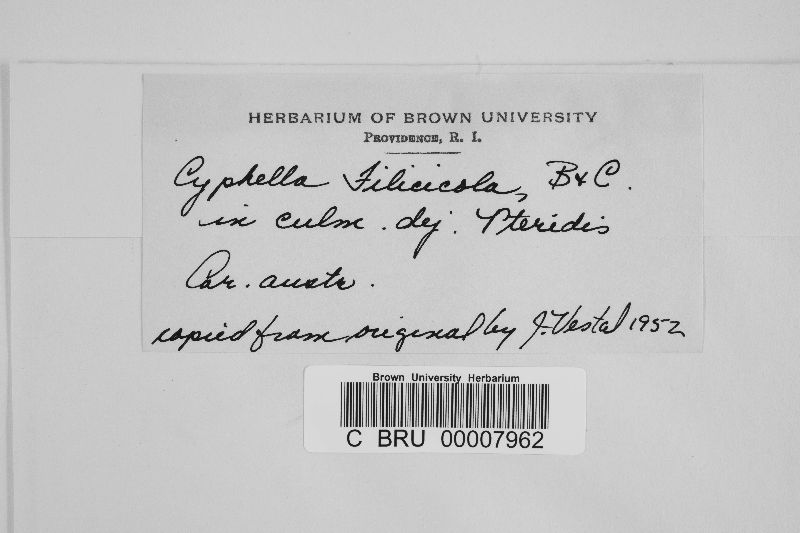 HERBARIUM OF BROWN UNIVERSITY
PROVIDENCE, R. I.
Cyphella Filicicola, B & C.
in culm. dej. Pteridis
Car. austr.
copied from original by J. Vestal 1952
Brown University Herbarium
C BRU 00007962